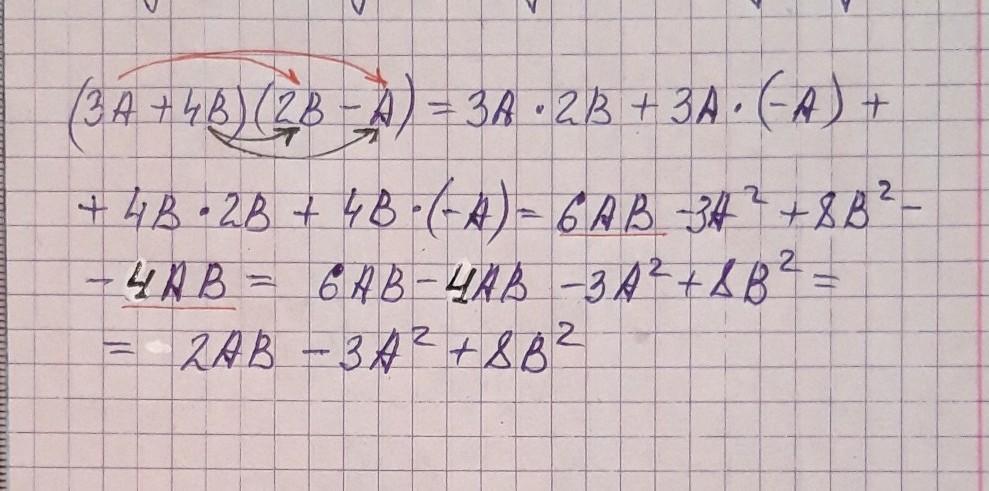 (3A + 4B)(2B - A) = 3A · 2B + 3A · (-A) +
+ 4B · 2B + 4B · (-A) = 6AB - 3A² + 8B² -
- 4AB = 6AB - 4AB - 3A² + 8B² =
= 2AB - 3A² + 8B²